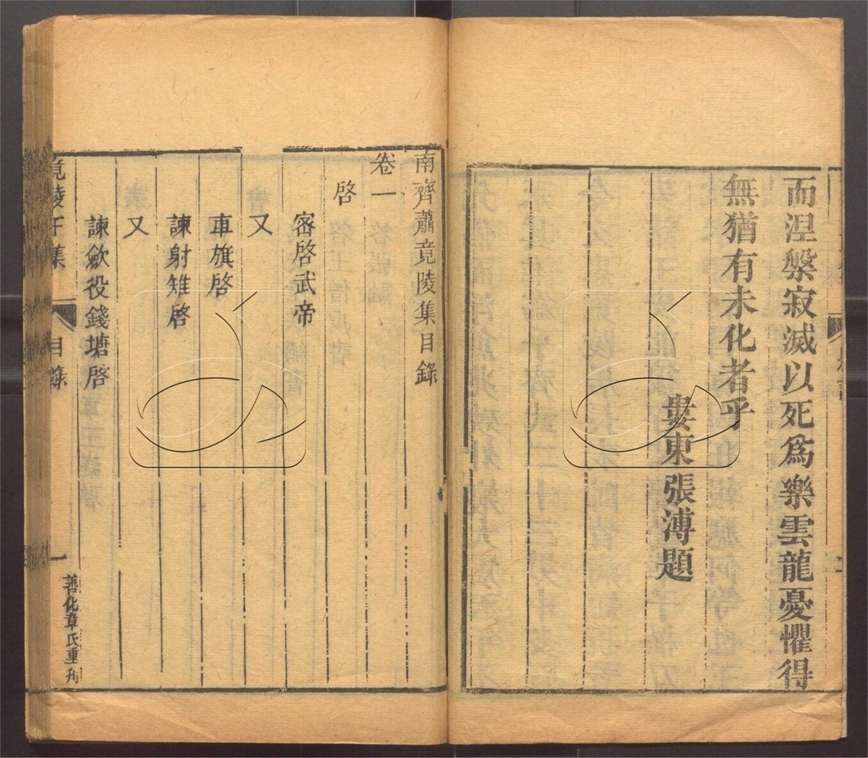 而涅槃寂滅以死爲樂雲龍憂懼得
無猶有未化者乎
婁東張溥題
南齊蕭竟陵集目錄
卷一
啓
密啓武帝
又
車旗啓
諫射雉啓
又
諫歛役錢塘啓
竟陵王集
目錄
一
善化章氏重刋